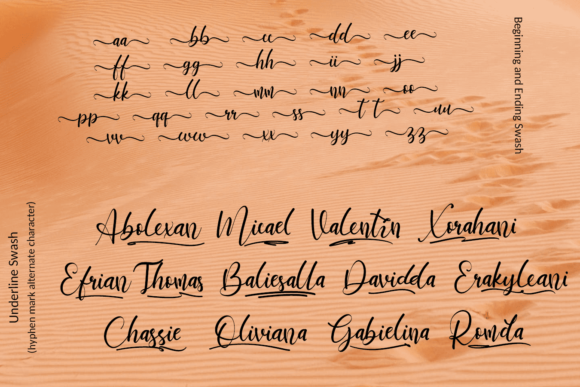 aa bb cc dd ee
ff gg hh ii jj
kk ll mm nn oo
pp qq rr ss tt uu
vv ww xx yy zz
Beginning and Ending Swash
Underline Swash
(hyphen mark alternate character)
Abolexan Micael Valentin Xorahani
Efrian Thomas Baliesalla Davidda Erakyleani
Chassie Oliviana Gabielina Romila